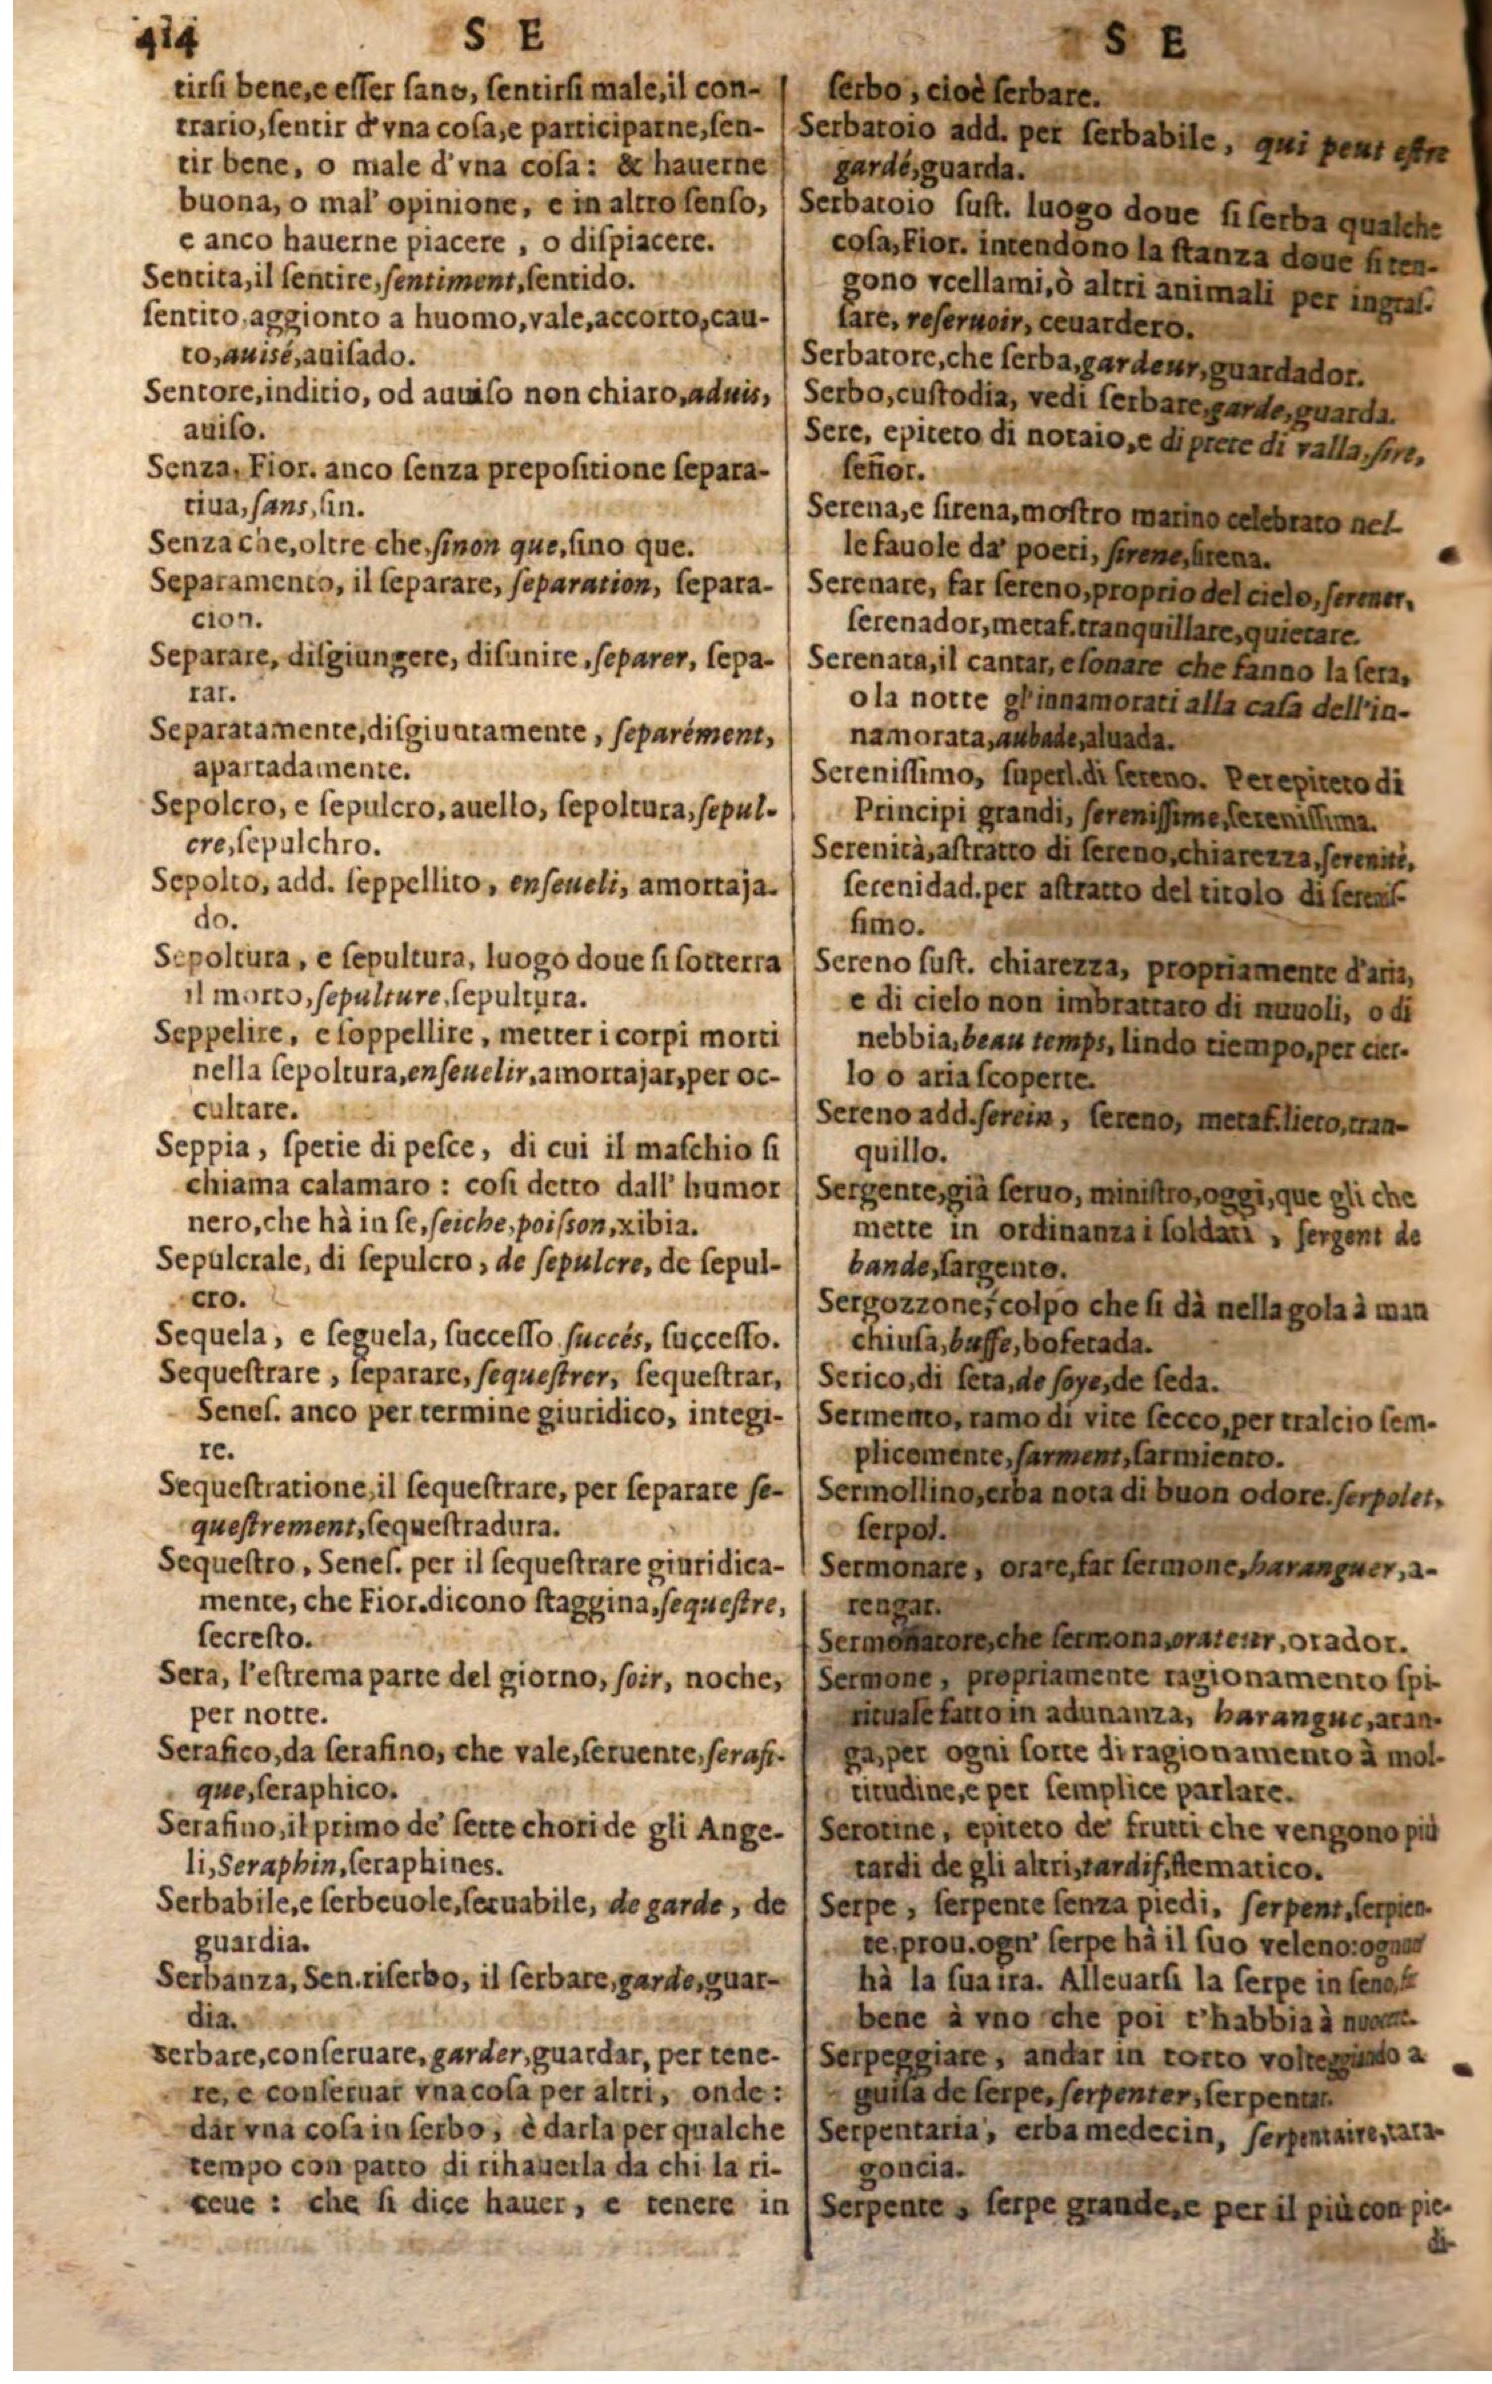 414
S E
S E
tirſi bene,e eſſer ſano, ſentirſi male,il con-
trario,ſentir d'vna coſa,e participarne,ſen-
tir bene, o male d'vna coſa: & hauerne
buona, o mal' opinione, e in altro ſenſo,
e anco hauerne piacere , o diſpiacere.
Sentita,il ſentire,ſentiment,ſentido.
ſentito,aggionto a huomo,vale,accorto,cau-
to,auisé,auiſado.
Sentore,inditio, od auuiſo non chiaro,aduis,
auiſo.
Senza, Fior. anco ſenza prepoſitione ſepara-
tiua,ſans,ſin.
Senza che,oltre che,ſinon que,ſino que.
Separamento, il ſeparare, ſeparation, ſepara-
cion.
Separare, diſgiungere, diſunire ,ſeparer, ſepa-
rar.
Separatamente,diſgiuntamente , ſeparément,
apartadamente.
Sepolcro, e ſepulcro,auello, ſepoltura,ſepul-
cre,ſepulchro.
Sepolto, add. ſeppellito , enſeueli, amortaja-
do.
Sepoltura , e ſepultura, luogo doue ſi ſotterra
il morto,ſepulture,ſepultura.
Seppelire, e ſoppellire , metter i corpi morti
nella ſepoltura,enſeuelir,amortajar,per oc-
cultare.
Seppia , ſpetie di peſce, di cui il maſchio ſi
chiama calamaro : coſi detto dall' humor
nero,che hà in ſe,ſeiche,poiſſon,xibia.
Sepulcrale, di ſepulcro , de ſepulcre, de ſepul-
cro.
Sequela, e ſeguela, ſucceſſo ſuccés, ſucceſſo.
Sequeſtrare , ſeparare, ſequeſtrer, ſequeſtrar,
Seneſ. anco per termine giuridico, integi-
re.
Sequeſtratione,il ſequeſtrare, per ſeparare ſe-
queſtrement,ſequeſtradura.
Sequeſtro , Seneſ. per il ſequeſtrare giuridica-
mente, che Fior.dicono ſtaggina,ſequeſtre,
ſecreſto.
Sera, l'eſtrema parte del giorno, ſoir, noche,
per notte.
Serafico,da ſerafino, che vale,feruente,ſerafi-
que,ſeraphico.
Serafino,il primo de' ſette chori de gli Ange-
li,Seraphin,ſeraphines.
Serbabile,e ſerbeuole,ſeruabile, de garde , de
guardia.
Serbanza, Sen.riſerbo, il ſerbare,garde,guar-
dia.
serbare,conſeruare,garder,guardar, per tene-
re, e conſeruar vna coſa per altri, onde :
dar vna coſa in ſerbo, è darla per qualche
tempo con patto di rihauerla da chi la ri-
ceue : che ſi dice hauer, e tenere in
ſerbo , cioè ſerbare.
Serbatoio add. per ſerbabile, qui peut eſtre
gardé,guarda.
Serbatoio ſuſt. luogo doue ſi ſerba qualche
coſa,Fior. intendono la ſtanza doue ſi ten-
gono vcellami,ò altri animali per ingraſ-
ſare, reſeruoir, ceuardero.
Serbatore,che ſerba,gardeur,guardador.
Serbo,cuſtodia, vedi ſerbare,garde,guarda.
Sere, epiteto di notaio,e di prete di valla,ſire,
ſeñor.
Serena,e ſirena,moſtro marino celebrato nel-
le fauole da' poeti, ſirene,ſirena.
Serenare, far ſereno,proprio del cielo,ſerener,
ſerenador,metaf.tranquillare,quietare.
Serenata,il cantar,e ſonare che fanno la ſera,
o la notte gl'innamorati alla caſa dell'in-
namorata,aubade,aluada.
Sereniſſimo, ſuperl.di ſereno. Per epiteto di
Principi grandi, ſereniſſime,ſereniſſima.
Serenità,aſtratto di ſereno,chiarezza,ſerenité,
ſerenidad.per aſtratto del titolo di ſereniſ-
ſimo.
Sereno ſuſt. chiarezza, propriamente d'aria,
e di cielo non imbrattato di nuuoli, o di
nebbia,beau temps, lindo tiempo,per cier-
lo o aria ſcoperte.
Sereno add.ſerein , ſereno, metaf.lieto,tran-
quillo.
Sergente,già ſeruo, miniſtro,oggi,que gli che
mette in ordinanza i ſoldati , ſergent de
bande,ſargento.
Sergozzone, colpo che ſi dà nella gola à man
chiuſa,buffe,bofetada.
Serico,di ſeta,de ſoye,de ſeda.
Sermento, ramo di vite ſecco,per tralcio ſem-
plicemente,ſarment,ſarmiento.
Sermollino,erba nota di buon odore.ſerpolet,
ſerpol.
Sermonare , orare,far ſermone,haranguer,a-
rengar.
Sermonatore,che ſermona,orateur,orador.
Sermone , propriamente ragionamento ſpi-
rituale fatto in adunanza, harangue,aran-
ga,per ogni ſorte di ragionamento à mol-
titudine,e per ſemplice parlare.
Serotine, epiteto de' frutti che vengono più
tardi de gli altri,tardif,ſtematico.
Serpe , ſerpente ſenza piedi, ſerpent,ſerpien-
te,prou.ogn' ſerpe hà il ſuo veleno:ognun
hà la ſua ira. Alleuarſi la ſerpe in ſeno,
bene à vno che poi t'habbia à
Serpeggiare, andar in torto volteggiando a
guiſa de ſerpe,ſerpenter,ſerpentar.
Serpentaria, erba medecin, ſerpentaire,tara-
goncia.
Serpente , ſerpe grande,e per il più con pie-
di